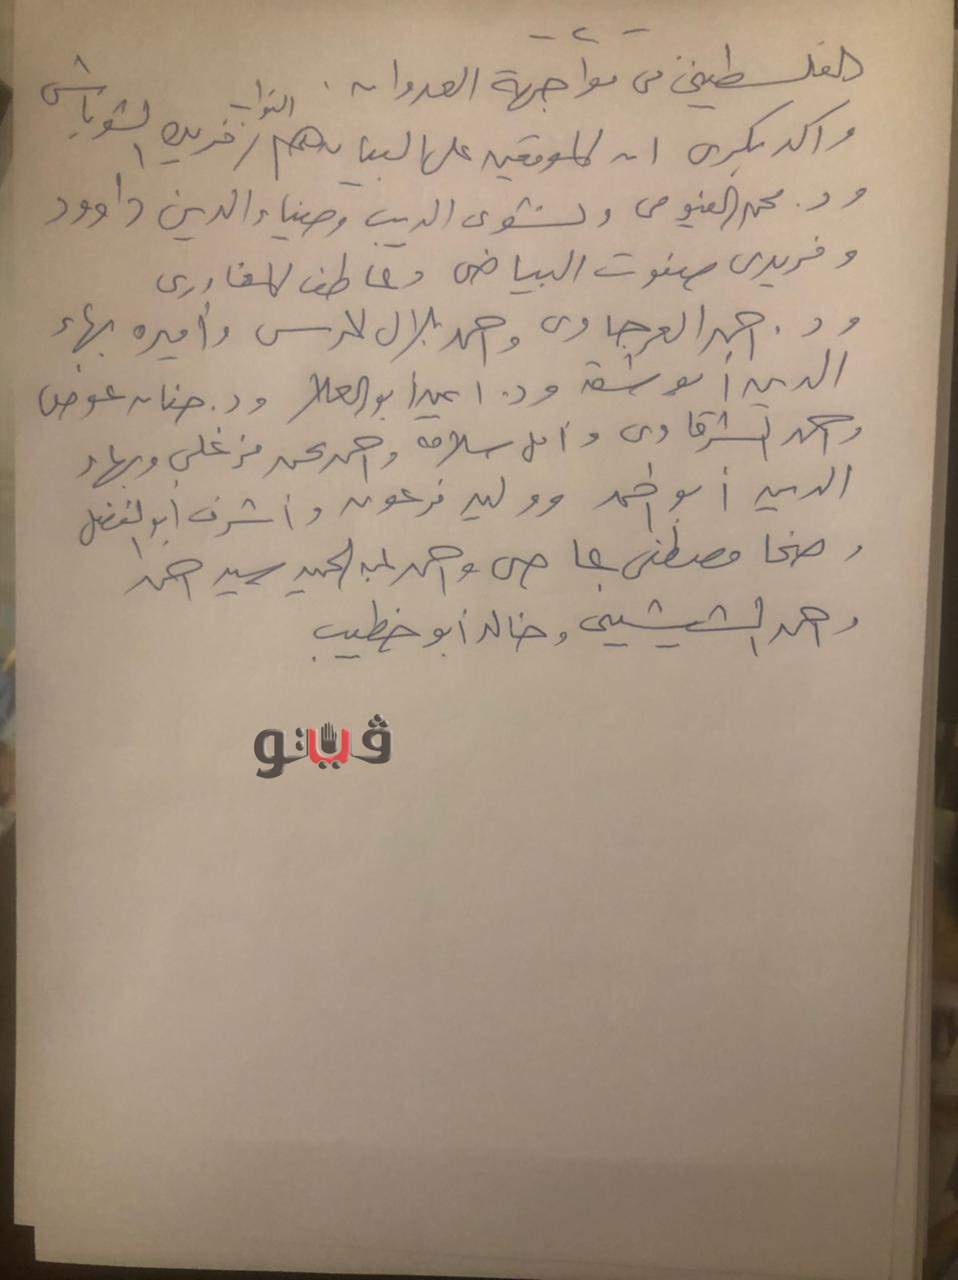 - ٢ -
الفلسطيني في مواجهة العدوان .
وأكد بكرى ان الموقعين على البيان هم / النواب فريدة الشوباشى
ود. محمد الفيومى ونشوى الديب وضياء الدين داوود
وفريدى البياضى وعاطف المغاورى
ود. أحمد العرجاوى وأحمد بلال البرلسى وأميره بهاء
الدين أبو شقة ود. أبو العلا ود. حنان عوض
وأحمد الشرقاوى وأمل سلامة وأحمد محمد فرغلى وبهاء
الدين أبو الحمد ووليد فرعون وأشرف أبو الفضل
وضحا مصطفى عاصى وأحمد عبد الحميد سيد أحمد
وأحمد الششينى وخالد أبو خطيب
ڤيتو